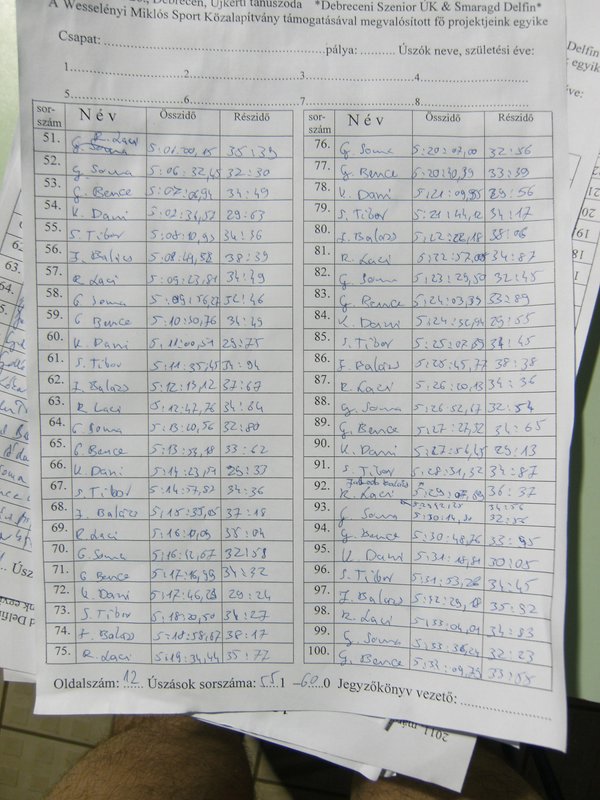 Debrecen, Újkerti tanuszoda *Debreceni Szenior ÚK & Smaragd Delfin*
A Wesselényi Miklós Sport Közalapítvány támogatásával megvalósított fő projektjeink egyike
Csapat: pálya: Úszók neve, születési éve:
1 2 3 4
5 6 7 8
sor-szám Név Összidő Részidő
51. R. Laci 35:39
52. G. Soma 5:06:32,45 32:30
53. G. Bence 34:49
54. K. Dani 29:63
55. S. Tibor 5:08:10,93 34:36
56. J. Balázs 5:08:49,58 38:39
57. R. Laci 5:09:23,81
58. G Soma
59. G Bence 5:10:30,76 34:49
60. K. Dani 5:11:00,51 29:75
61. S. Tibor 5:11:35,45 34:94
62. J. Balázs 5:12:13,12 37:67
63. R Laci 5:12:47,76 34:64
64. G Soma 5:13:20,56 32:80
65. G Bence 5:13:53,18 33:62
66. K. Dani 29:37
67. S. Tibor 5:14:57,82 34:36
68. J. Balázs 37:18
69. R. Laci 35:04
70. G. Soma
71. G Bence 34:32
72. K. Dani 29:24
73. S. Tibor 5:18:20,50 34:27
74. J. Balázs 5:18:58,67 38:17
75. R. Laci 5:19:34,44 35:77
sor-szám Név Összidő Részidő
76. G. Soma 5:20:07,00 32:56
77. G. Bence 5:20:40,39 33:39
78. K. Dani 29:56
79. S. Tibor 5:21:44,12 34:17
80. J. Balázs 5:22:22,18 38:06
81. R. Laci 34:87
82. G. Soma 5:23:29,50 32:45
83. G. Bence 5:24:03,39 33:89
84. K. Dani 29:55
85. S. Tibor 34:45
86. J. Balázs 5:25:45,77 38:38
87. R. Laci 5:26:20,13 34:36
88. G. Soma 5:26:52,67 32:54
89. G. Bence 5:27:27,32 34:65
90. K. Dani 29:13
91. S. Tibor 5:28:31,32 34:87
92. R. Laci 36:37
93. G Soma
94. G. Bence 5:30:48,76
95. K Dani 5:31:18,81 30:05
96. S. Tibor 5:31:53,26 34:45
97. J. Balázs 5:32:29,18 35:92
98. R. Laci 5:33:04,01 34:83
99. G. Soma 5:33:36,24 32:23
100. G. Bence 5:34:09,79 33:55
Oldalszám: 12 Úszások sorszáma: 55 1 -60 0 Jegyzőkönyv vezető: